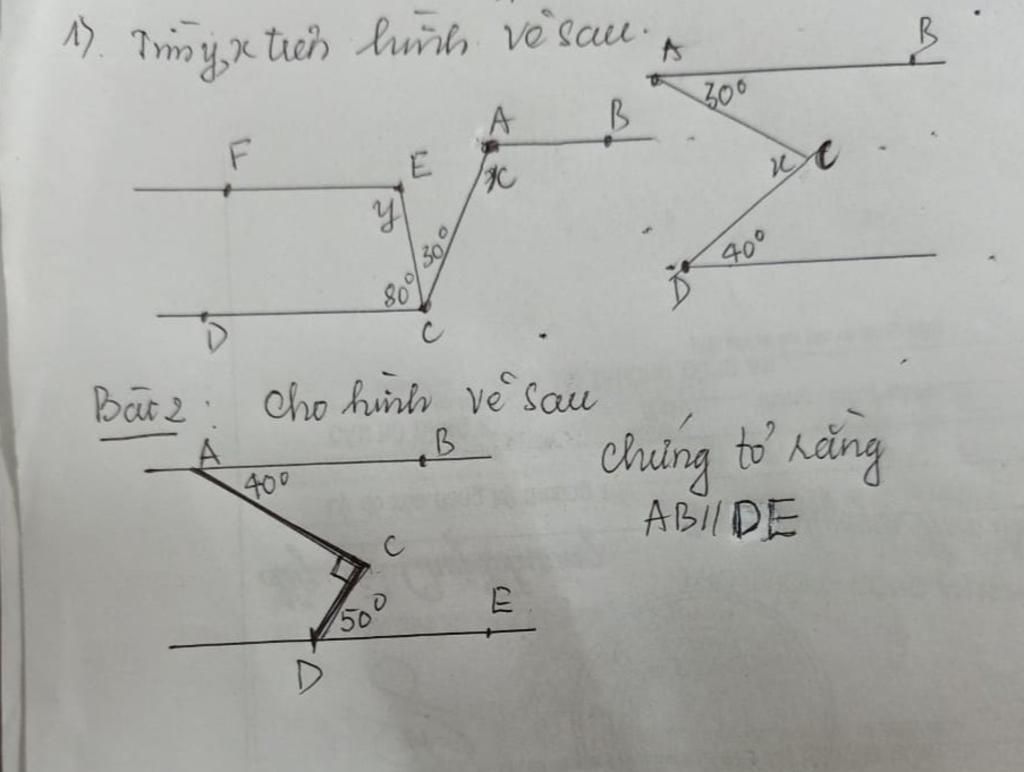 1). Tìm y,x trên hình vẽ sau.
A B
30°
x C
40°
D
A B
F E
x
y
30°
80°
D C
Bài 2: Cho hình vẽ sau
A B
40°
chứng tỏ rằng
AB//DE
C
50° E
D